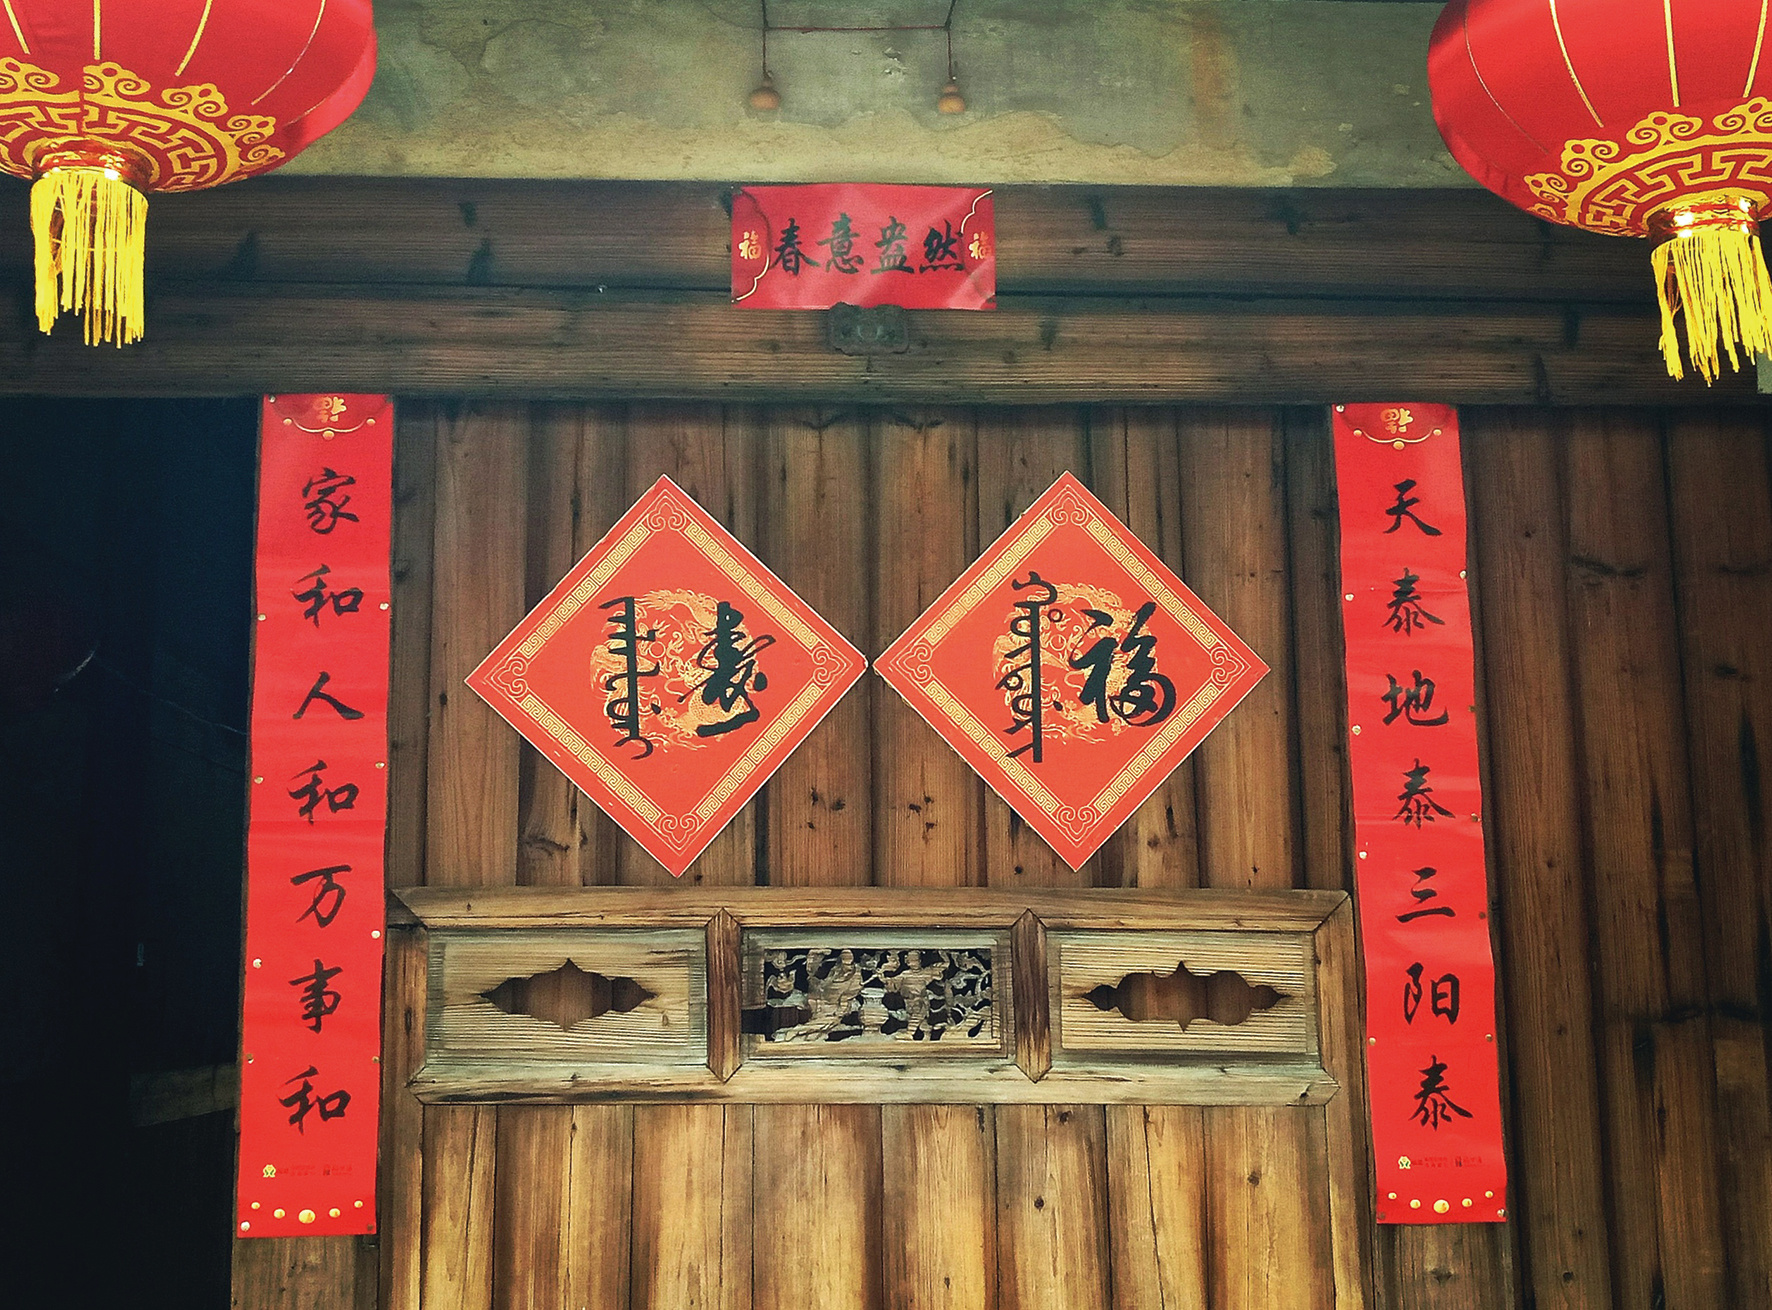 春意盎然
天泰地泰三阳泰
家和人和万事和
福
寿
福
福
福
福